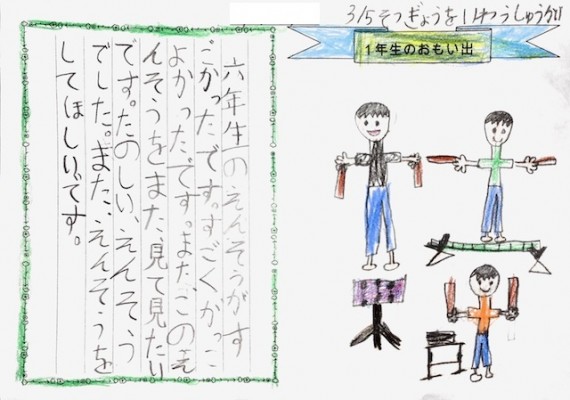 3/5そつぎょうをいわうしゅうかい
1年生のおもい出
六年生のえんそうがす
ごかったです。すごくかっこ
よかったです。またこのえ
んそうをまた、見て見たい
です。たのしい、えんそう
でした。また、えんそうを
してほしいです。